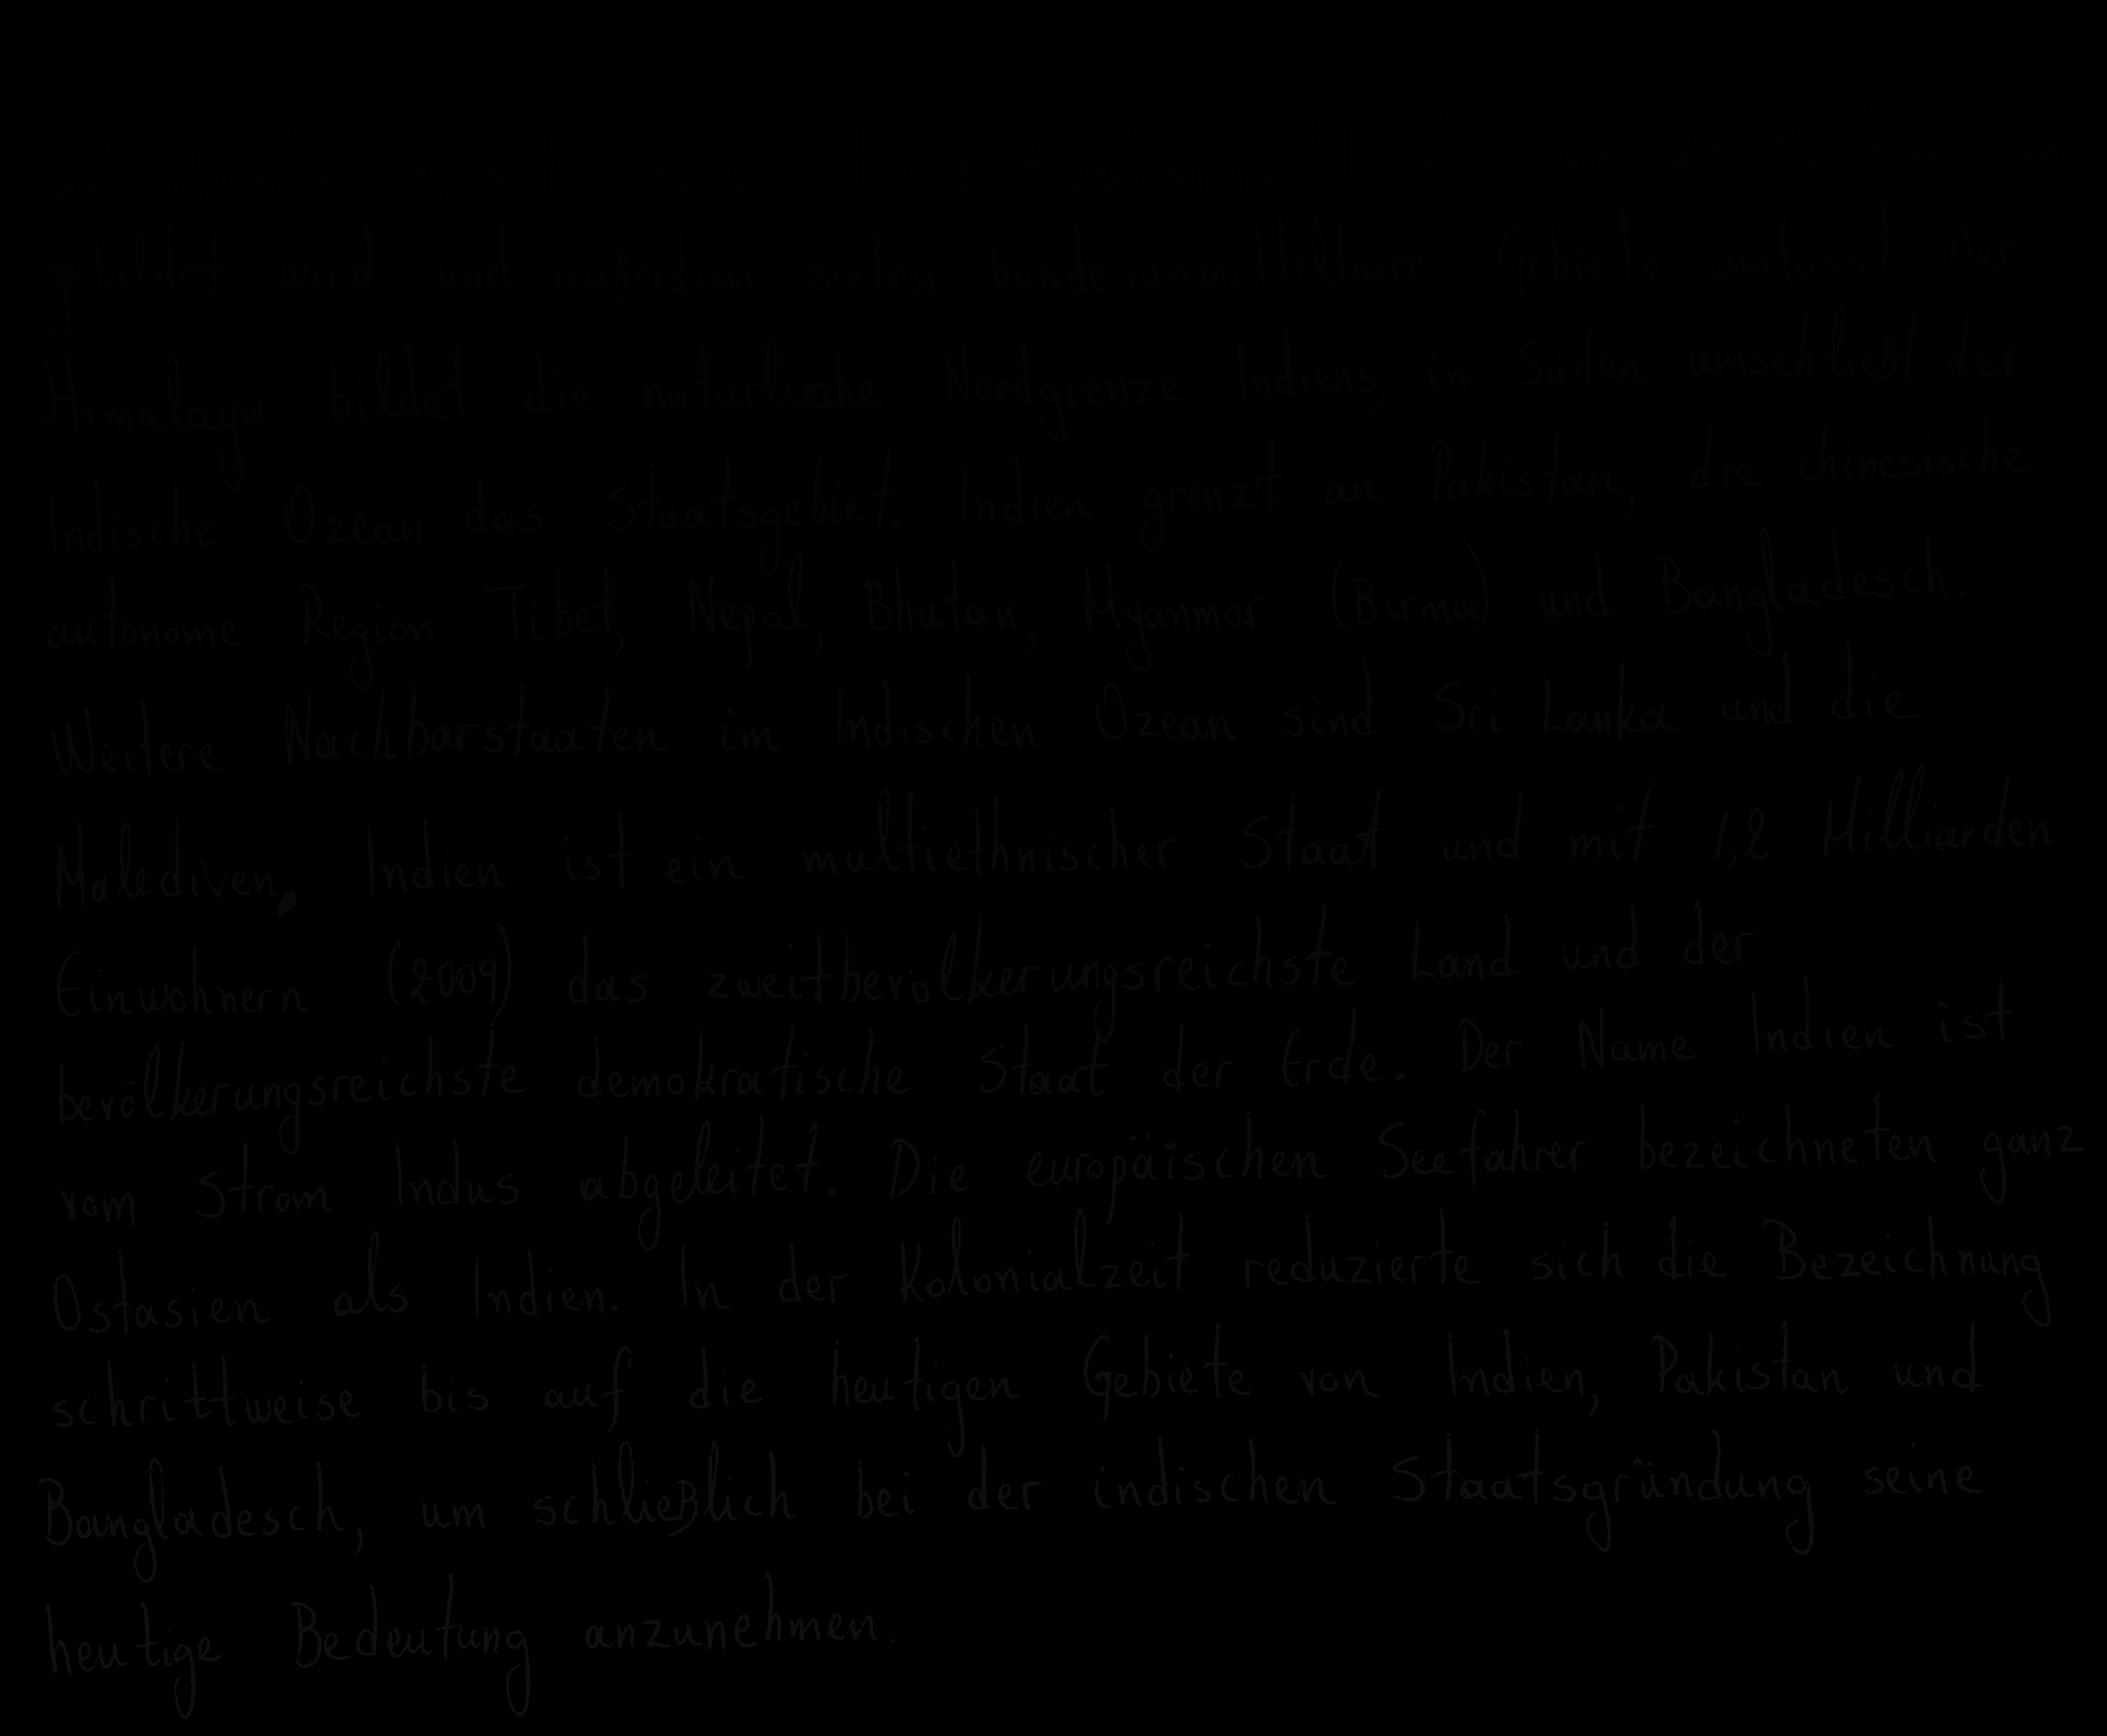 Subkontinents umfasst. Indien ist eine Bundesrepublik, die von 28 Bundesstaaten
gebildet wird und außerdem sieben bundesunmittelbare Gebiete umfasst. Der
Himalaya bildet die natürliche Nordgrenze Indiens, in Süden umschließt der
Indische Ozean das Staatsgebiet. Indien grenzt an Pakistan, die chinesische
autonome Region Tibet, Nepal, Bhutan, Myanmar (Birma) und Bangladesch.
Weitere Nachbarstaaten im Indischen Ozean sind Sri Lanka und die
Malediven. Indien ist ein multiethnischer Staat und mit 1,2 Milliarden
Einwohnern (2009) das zweitbevölkerungsreichste Land und der
bevölkerungsreichste demokratische Staat der Erde. Der Name Indien ist
vom Strom Indus abgeleitet. Die europäischen Seefahrer bezeichneten ganz
Ostasien als Indien. In der Kolonialzeit reduzierte sich die Bezeichnung
schrittweise bis auf die heutigen Gebiete von Indien, Pakistan und
Bangladesch, um schließlich bei der indischen Staatsgründung seine
heutige Bedeutung anzunehmen.